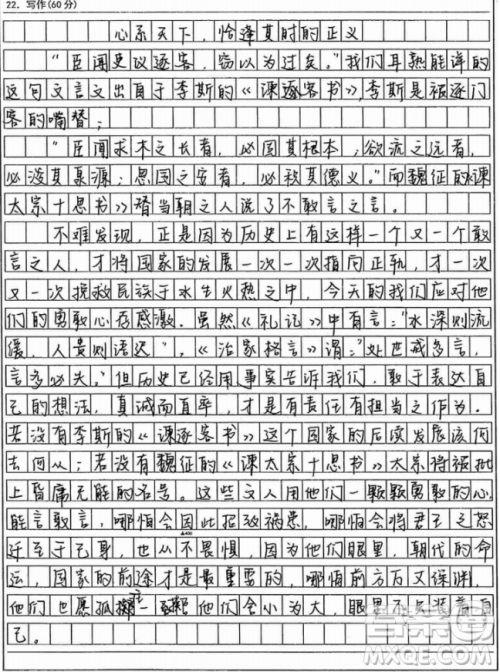 22. 写作(60分)
心系天下，恰逢其时的正义
“臣闻吏议逐客，窃以为过矣。”我们耳熟能详的
这句文言文出自于李斯的《谏逐客书》，李斯是被逐门
客的嘴替；
“臣闻求木之长者，必固其根本；欲流之远者，
必浚其泉源；思国之安者，必积其德义。”而魏征的《谏
太宗十思书》替当朝之人说了不敢言之言。
不难发现，正是因为历史上有这样一个又一个敢
言之人，才将国家的发展一次一次指向正轨，才一次
又一次挽救民族于水生火热之中，今天的我们应对他
们的勇敢心存感激。虽然《礼记》中有言：“水深则流
缓，人贵则语迟”，《治家格言》谓：“处世戒多言，
言多必失。”但历史已经用事实告诉我们，敢于表达自
己的想法，真诚而直率，才是有责任有担当之作为。
若没有李斯的《谏逐客书》这个国家的后续发展该何
去何从；若没有魏征的《谏太宗十思书》太宗将被批
上昏庸无能的名号。这些文人用他们一颗颗勇敢的心
能言敢言，哪怕会因此招致祸患，哪怕会将君王之怒
迁至于己身，也从不畏惧，因为他们眼里，朝代的命
运，国家的前途才是最重要的，哪怕前方万丈深渊，
他们也愿孤注一掷 他们会小为大，眼里不只装着自
己。
答案圈
MXQE.COM